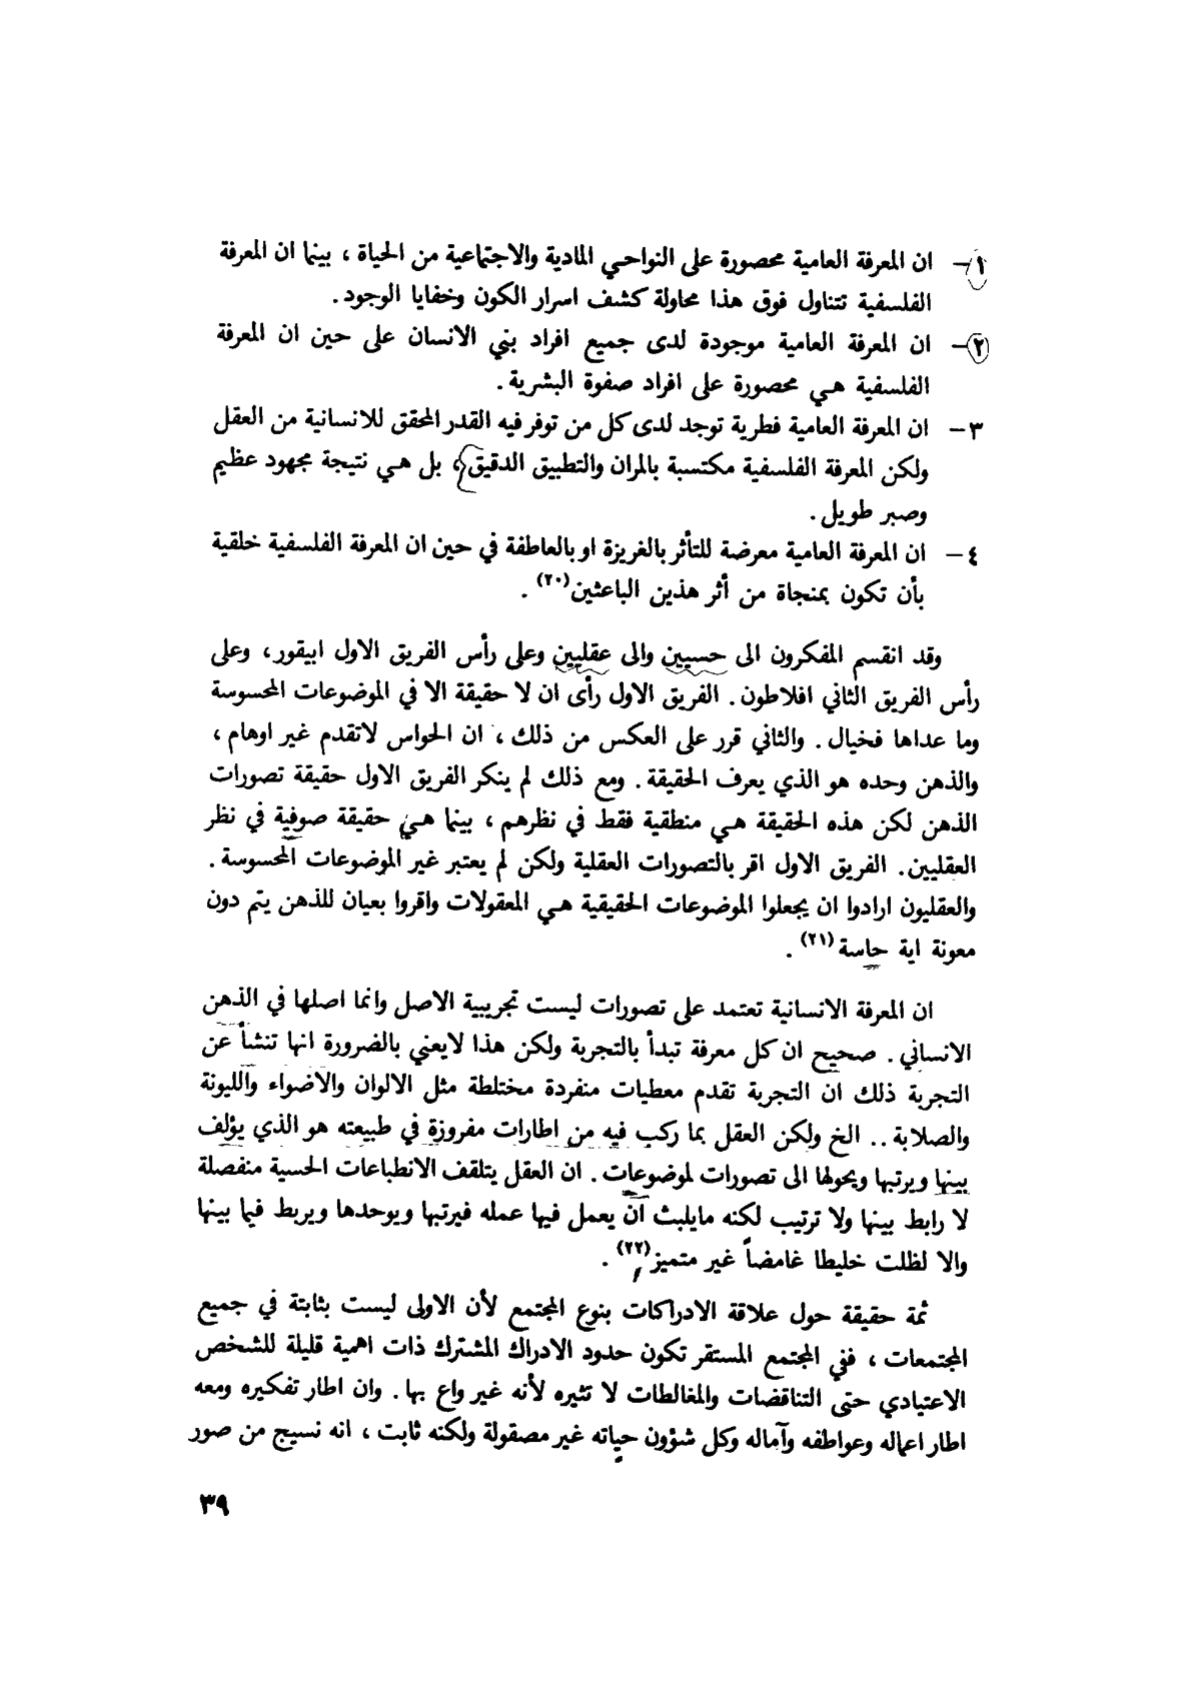 ١- ان المعرفة العامية محصورة على النواحي المادية والاجتماعية من الحياة ، بينما ان المعرفة
الفلسفية تتناول فوق هذا محاولة كشف اسرار الكون وخفايا الوجود .
٢- ان المعرفة العامية موجودة لدى جميع افراد بني الانسان على حين ان المعرفة
الفلسفية هي محصورة على افراد صفوة البشرية .
٣- ان المعرفة العامية فطرية توجد لدى كل من توفر فيه القدر المحقق للانسانية من العقل
ولكن المعرفة الفلسفية مكتسبة بالمران والتطبيق الدقيق ، بل هي نتيجة مجهود عظيم
وصبر طويل .
٤- ان المعرفة العامية معرضة للتأثر بالغريزة او بالعاطفة في حين ان المعرفة الفلسفية خلقية
بأن تكون بمنجاة من أثر هذين الباعثين (٢٠) .
وقد انقسم المفكرون الى حسيين والى عقليين وعلى رأس الفريق الاول ابيقور ، وعلى
رأس الفريق الثاني افلاطون . الفريق الاول رأى ان لا حقيقة الا في الموضوعات المحسوسة
وما عداها فخيال . والثاني قرر على العكس من ذلك ، ان الحواس لاتقدم غير اوهام ،
والذهن وحده هو الذي يعرف الحقيقة . ومع ذلك لم ينكر الفريق الاول حقيقة تصورات
الذهن لكن هذه الحقيقة هي منطقية فقط في نظرهم ، بينما هي حقيقة صوفية في نظر
العقليين . الفريق الاول اقر بالتصورات العقلية ولكن لم يعتبر غير الموضوعات المحسوسة .
والعقليون ارادوا ان يجعلوا الموضوعات الحقيقية هي المعقولات واقروا بعيان للذهن يتم دون
معونة اية حاسة (٢١) .
ان المعرفة الانسانية تعتمد على تصورات ليست تجريبية الاصل وانما اصلها في الذهن
الانساني . صحيح ان كل معرفة تبدأ بالتجربة ولكن هذا لايعني بالضرورة انها تنشأ عن
التجربة ذلك ان التجربة تقدم معطيات منفردة مختلطة مثل الالوان والاضواء والليونة
والصلابة .. الخ ولكن العقل بما ركب فيه من اطارات مفروزة في طبيعته هو الذي يؤلف
بينها ويرتبها ويحولها الى تصورات لموضوعات . ان العقل يتلقف الانطباعات الحسية منفصلة
لا رابط بينها ولا ترتيب لكنه مايلبث أن يعمل فيها عمله فيرتبها ويوحدها ويربط فيما بينها
والا لظلت خليطا غامضاً غير متميز (٢٢) .
ثمة حقيقة حول علاقة الادراكات بنوع المجتمع لأن الاولى ليست بثابتة في جميع
المجتمعات ، ففي المجتمع المستقر تكون حدود الادراك المشترك ذات اهمية قليلة للشخص
الاعتيادي حتى التناقضات والمغالطات لا تثيره لأنه غير واع بها . وان اطار تفكيره ومعه
اطار اعماله وعواطفه وآماله وكل شؤون حياته غير مصقولة ولكنه ثابت ، انه نسيج من صور
٣٩